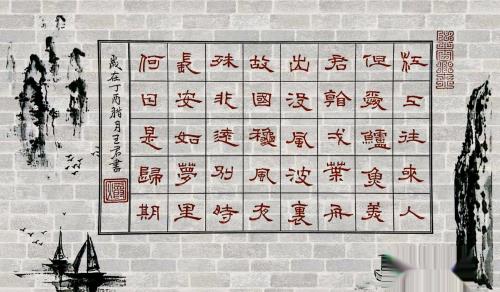 江上往來人
但愛鱸魚美
君看弌葉舟
出沒風波裏
故國穐風夜
殊非遠別時
長安如夢里
何日是歸期
歲在丁酉腊月王君書